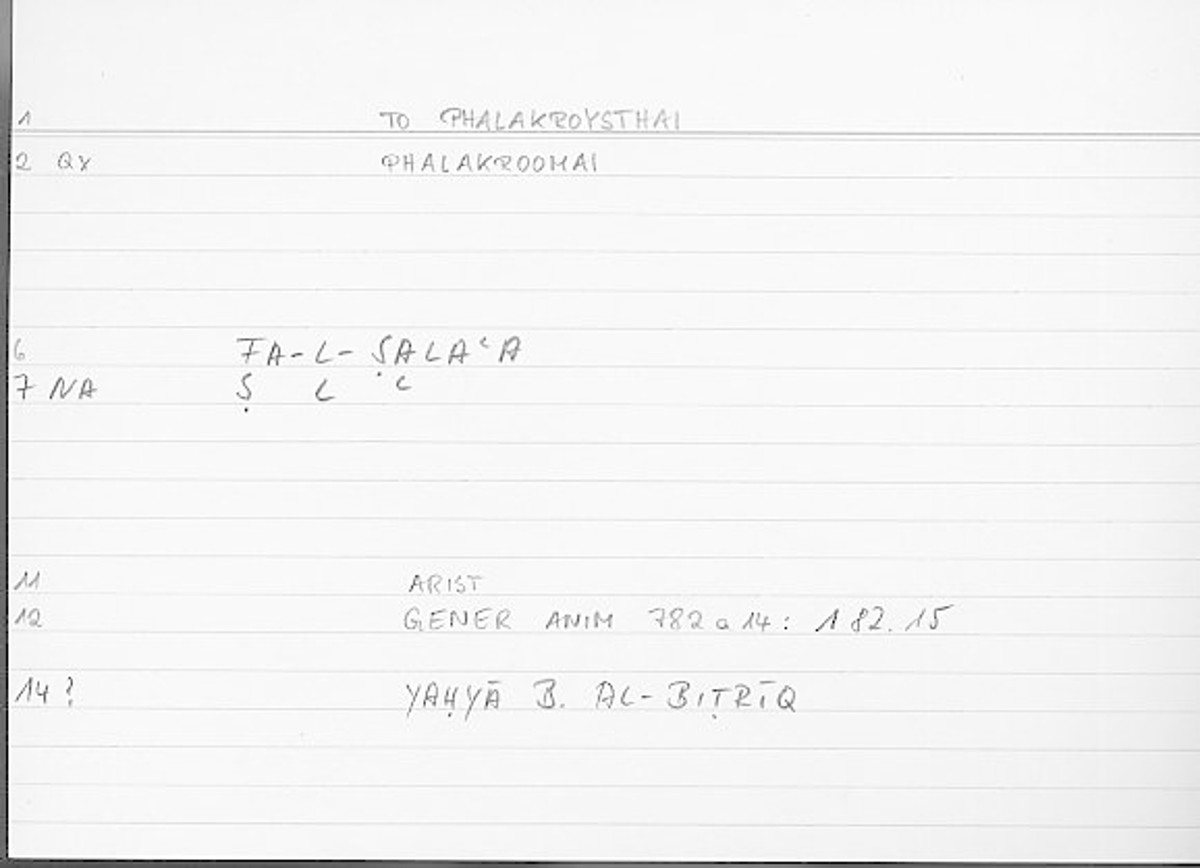 1 TO PHALAKROYSTHAI
2 QX PHALAKROOMAI
6 FA-L-ṢALAʿA
7 NA Ṣ L ʿ
11 ARIST
12 GENER ANIM 782 a 14: 182.15
14 ? YAḤYĀ B. AL-BIṬRĪQ